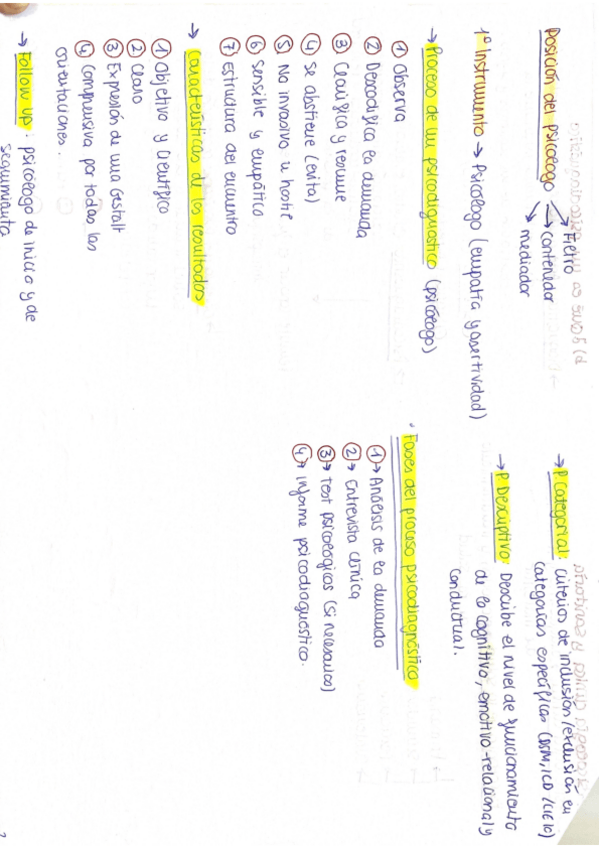 Posición del psicólogo → Filtro
→ contenedor
→ mediador
1º Instrumento → Psicólogo (empatía y asertividad)
→ Proceso de un psicodiagnostico (psicólogo)
① Observa
② Decodifica la demanda
③ Clarifica y resume
④ Se abstiene (evita)
⑤ No invasivo u hostil
⑥ Sensible y empático
⑦ Estructura del encuentro
→ Características de los resultados
① Objetivo y Científico
② Claro
③ Expresión de una Gestalt
④ Comprensiva por todas las
orientaciones.
→ Follow up: psicólogo da inicio y de
seguimiento
→ P Categorial: criterios de inclusión/exclusión en
categorías específicas (DSM, ICD/CIE 10)
→ P Descriptivo: Describe el nivel de funcionamiento
de lo cognitivo, emotivo-relacional y
conductual.
· Fases del proceso psicodiagnóstico
① → Análisis de la demanda
② → Entrevista clínica
③ → Test psicológicos (si necesarios)
④ → Informe psicodiagnostico.